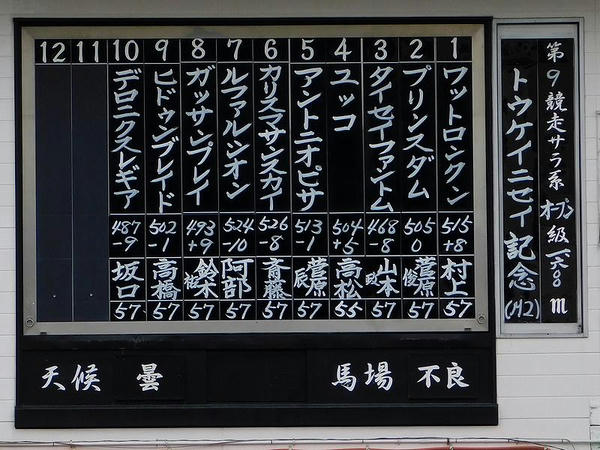 第9競走サラ系オープン級一六〇〇m
トウケイニセイ記念(M2)
1 ワットロンクン 515 +8 村上 57
2 プリンスダム 505 0 菅原俊 57
3 タイセイファントム 468 -8 山本政 57
4 ユッコ 504 +5 高松 55
5 アントニオピサ 513 -1 菅原辰 57
6 カリスマサンスカイ 526 -8 斎藤 57
7 ルファルシオン 524 -10 阿部 57
8 ガッサンプレイ 493 +9 鈴木祐 57
9 ヒドゥンブレイド 502 -1 高橋 57
10 デロニクスレギア 487 -9 坂口 57
11
12
天候 曇
馬場 不良